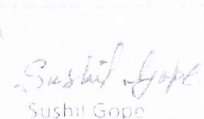 Sushil Gope
Sushil Gope